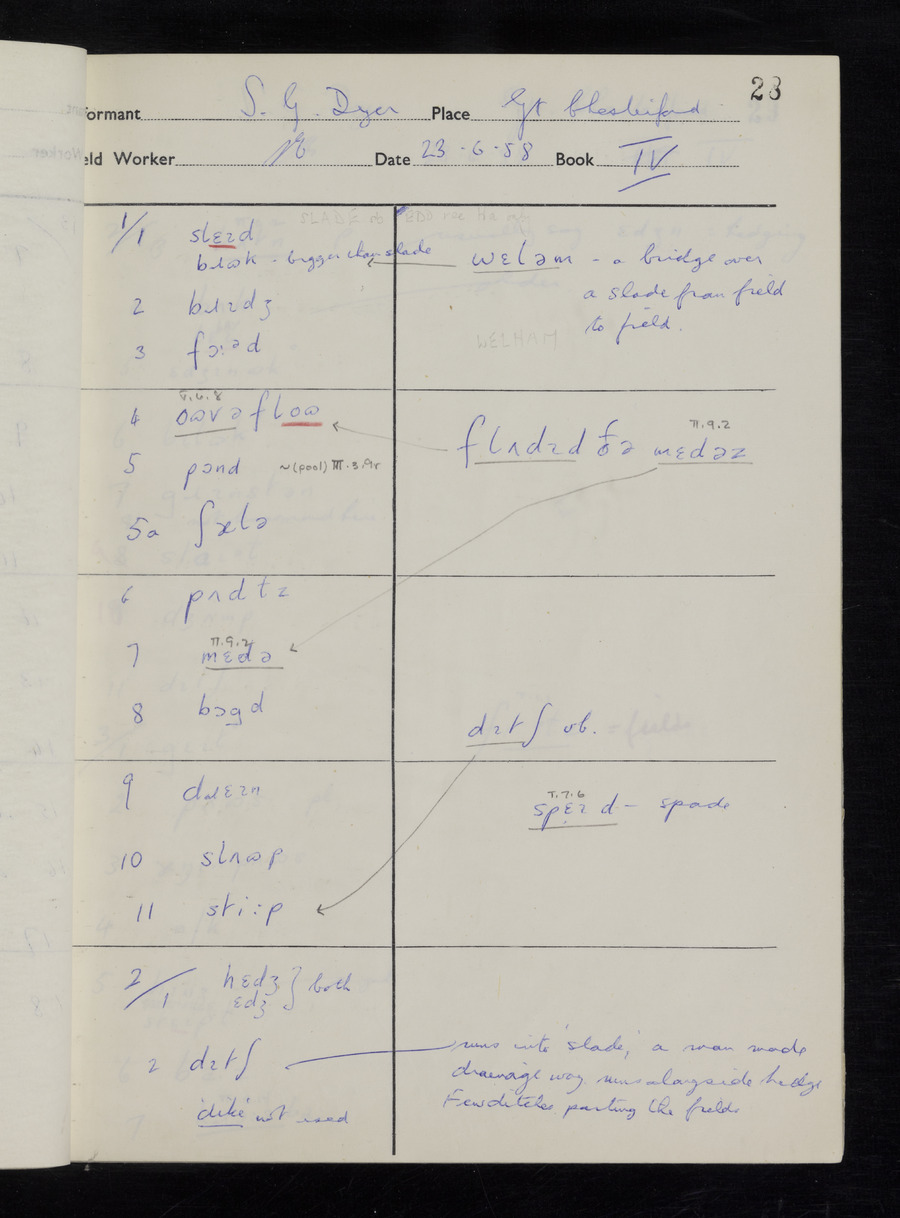 28
formant S. G. Dyer Place Gt Chesterford
eld Worker Date 23 - 6 - 58 Book IV
1/1 slɛɪd
bɹɷk - bigger than slade
wɛləm - a bridge over
a slade from field
to field.
2 bɹɪdʒ
3 fɔːəd
WELHAM
V.6.8
4 oɷvəfloɷ
II.9.2
flʌdɪd ðə mɛdəz
5 pɔnd ~(pool) III.3.9r
5a ʃælə
6 pʌdlz
II.9.2
7 mɛdə
8 bɔgd
dɪtʃ vb.
9 dɹɛɪn
I.7.6
spɛɪd - spade
10 slʌɷp
11 stiːp
2/1 hɛdʒ } both
ɛdʒ
2 dɪtʃ
runs into 'slade', a man made
drainage way, runs alongside hedge
Few ditches parting the fields
'dike' not used